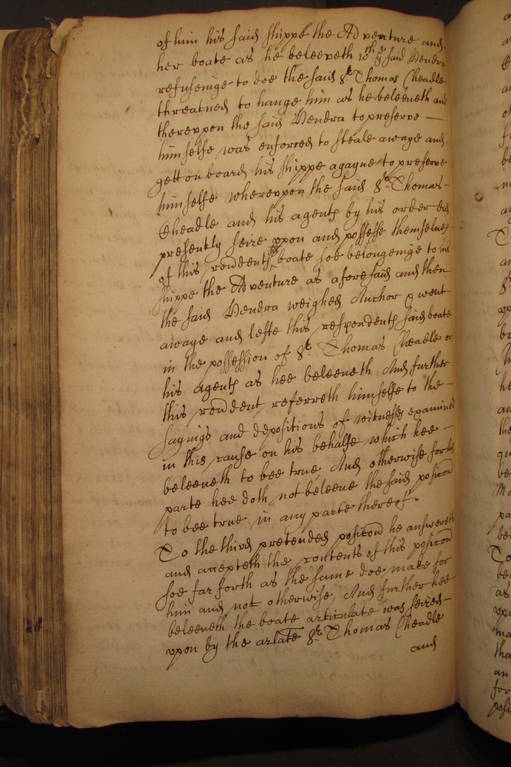 of him his said shippe the Adventure and
her boate as he beleeveth wch ye said Kendra
refuseinge to doe the said Sr Thomas Cheadle
threatned to hange him as he beleeveth and
thereupon the said Kendra to preserve
himselfe was enforced to steale awaye and
gett on board his shippe agayne to preserve
himselfe whereuppon the said Sr Thomas
Cheadle and his agents by his order did
presently seize uppon and possesse themselves
of this rendents boate soe belonginge to his
shippe the Adventure as aforesaid and then
the said Kendra weighed Anchor & went
awaye and lefte this respondents said boate
in the possession of Sr Thomas Cheadle or
his agents as hee beleeveth And further
this rondent referreth himselfe to the
sayings and depositions of witnesses examined
in this cause on his behalfe which hee
beleeveth to bee true And otherwise for his
parte hee doth not beleeve the said posicon
to bee true in any parte thereof
To the third pretended posicon he answereth
and accepteth the contents of this posicon
soe far forth as the same doe make for
him and not otherwise, And further hee
beleeveth the boate articulate was seized
upon by the arlate Sr Thomas Cheadle
and
28